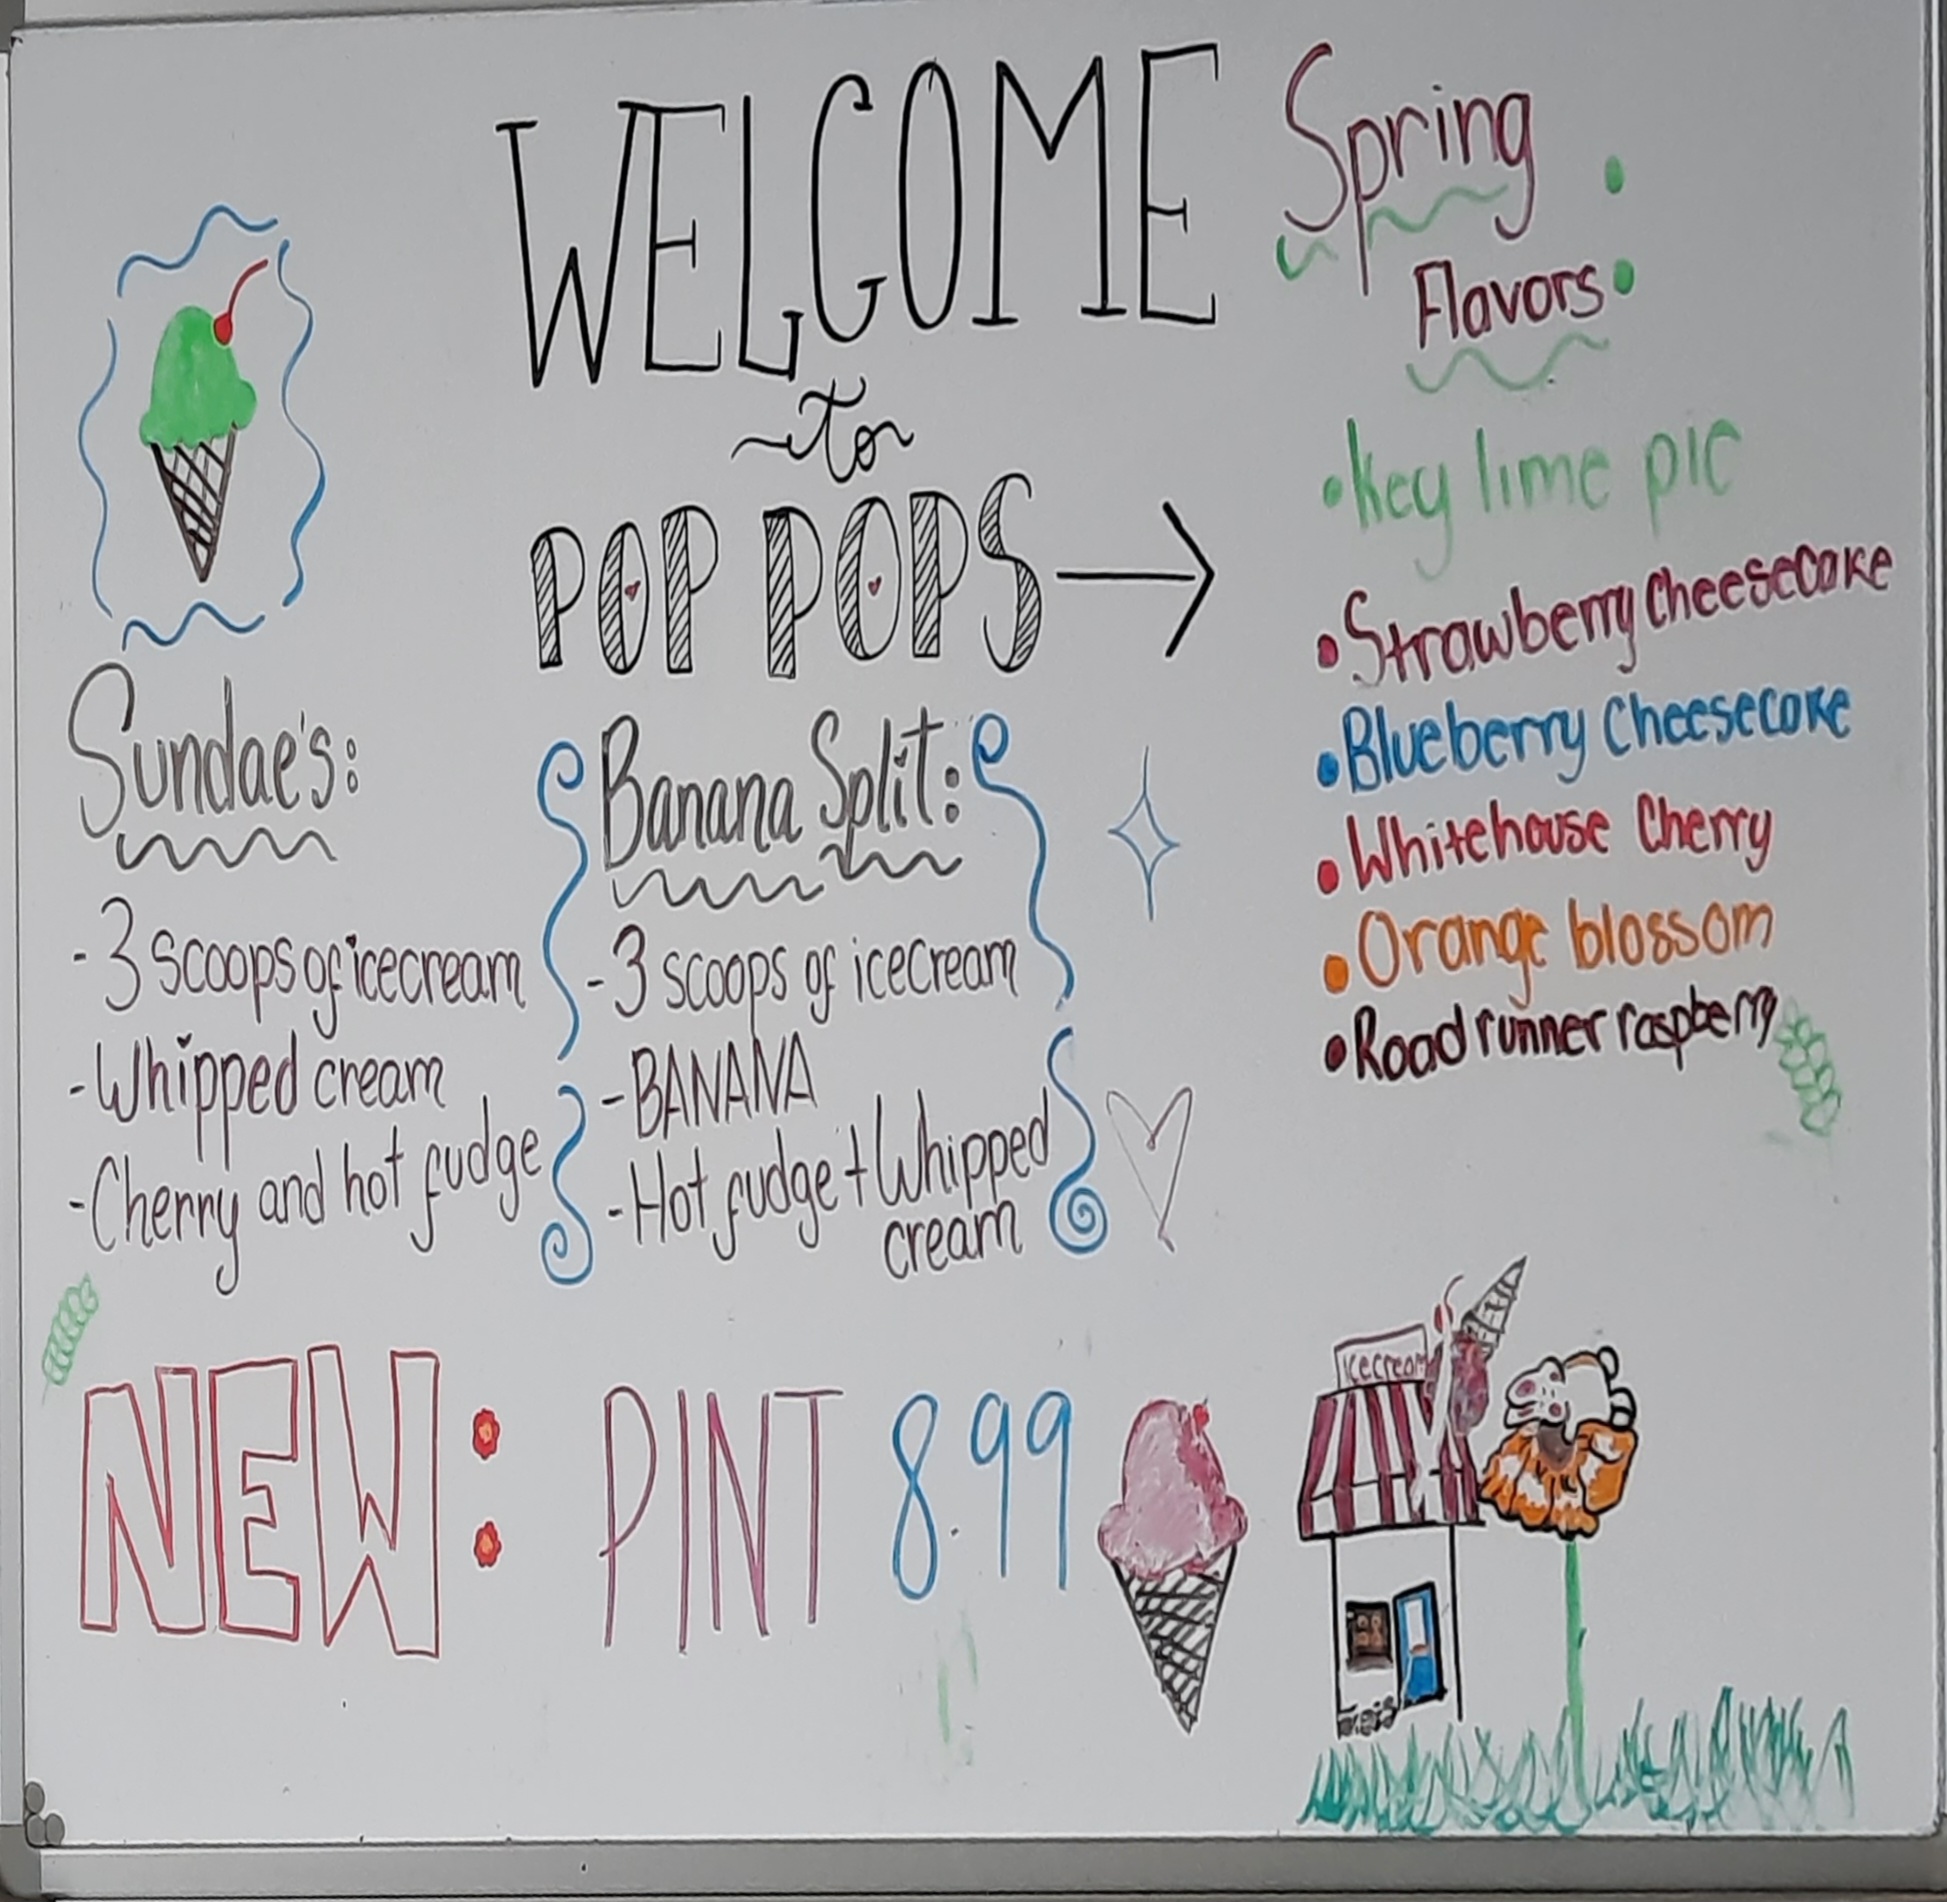 WELCOME
to
POP POPS
Spring
Flavors:
• Key lime pie
• Strawberry Cheesecake
• Blueberry Cheesecake
• Whitehouse Cherry
• Orange blossom
• Road runner raspberry
Sundae's:
- 3 scoops of icecream
- Whipped cream
- Cherry and hot fudge
Banana Split:
- 3 scoops of icecream
- BANANA
- Hot fudge + Whipped
cream
NEW: PINT 8.99
icecream